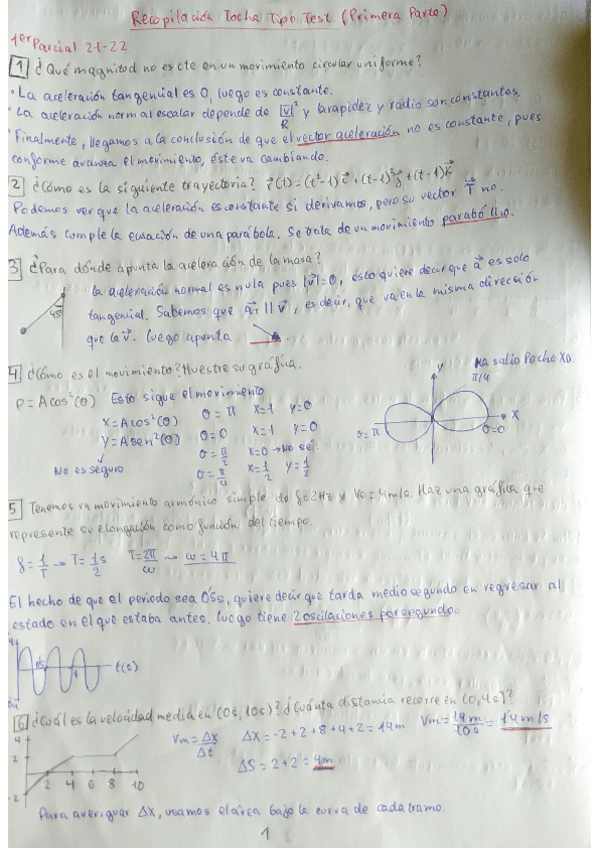 Recopilación Tocha Tipo Test (Primera Parte)
1er Parcial 21-22
1 ¿Qué magnitud no es cte en un movimiento circular uniforme?
• La aceleración tangencial es 0, luego es constante.
• La aceleración normal escalar depende de |v|²/R y la rapidez y radio son constantes.
• Finalmente, llegamos a la conclusión de que el vector aceleración no es constante, pues
conforme avanza el movimiento, éste va cambiando.
2 ¿Cómo es la siguiente trayectoria? r(t) = (t²-1)i + (t-1)²j + (t-1)k
Podemos ver que la aceleración es constante si derivamos, pero su vector T no.
Además cumple la ecuación de una parábola. Se trata de un movimiento parabólico.
3 ¿Para dónde apunta la aceleración de la masa?
45°
La aceleración normal es nula pues |v|=0, esto quiere decir que a es solo
tangencial. Sabemos que aT || v, es decir, que va en la misma dirección
que la v. Luego apunta
4 ¿Cómo es el movimiento? Muestre su gráfica.
Ha salio Pocho XD.
ρ = A cos²(θ) Esto sigue el movimiento
x = A cos²(θ) θ = π x=1 y=0
y = A sen²(θ) θ=0 x=1 y=0
θ = π/2 x=0 → No sé.
No es seguro θ = π/4 x = 1/2 y = 1/2
y
π/4
x
θ=π
θ=0
5 Tenemos un movimiento armónico simple de f=2Hz y v0=4m/s. Haz una gráfica que
represente su elongación como función del tiempo.
f = 1/T → T = 1/2 s T = 2π/ω → ω = 4π
El hecho de que el periodo sea 0'5s, quiere decir que tarda medio segundo en regresar al
estado en el que estaba antes. Luego tiene 2 oscilaciones por segundo.
t(s)
6 ¿Cuál es la velocidad media en (0s, 10s)? ¿Cuánta distancia recorre en (0,4s)?
Vm = Δx/Δt Δx = -2+2+8+4+2 = 14m Vm = 14m/10s = 1'4 m/s
ΔS = 2+2 = 4m
4
2
-2
2 4 6 8 10
Para averiguar Δx, usamos el área bajo la curva de cada tramo.
1